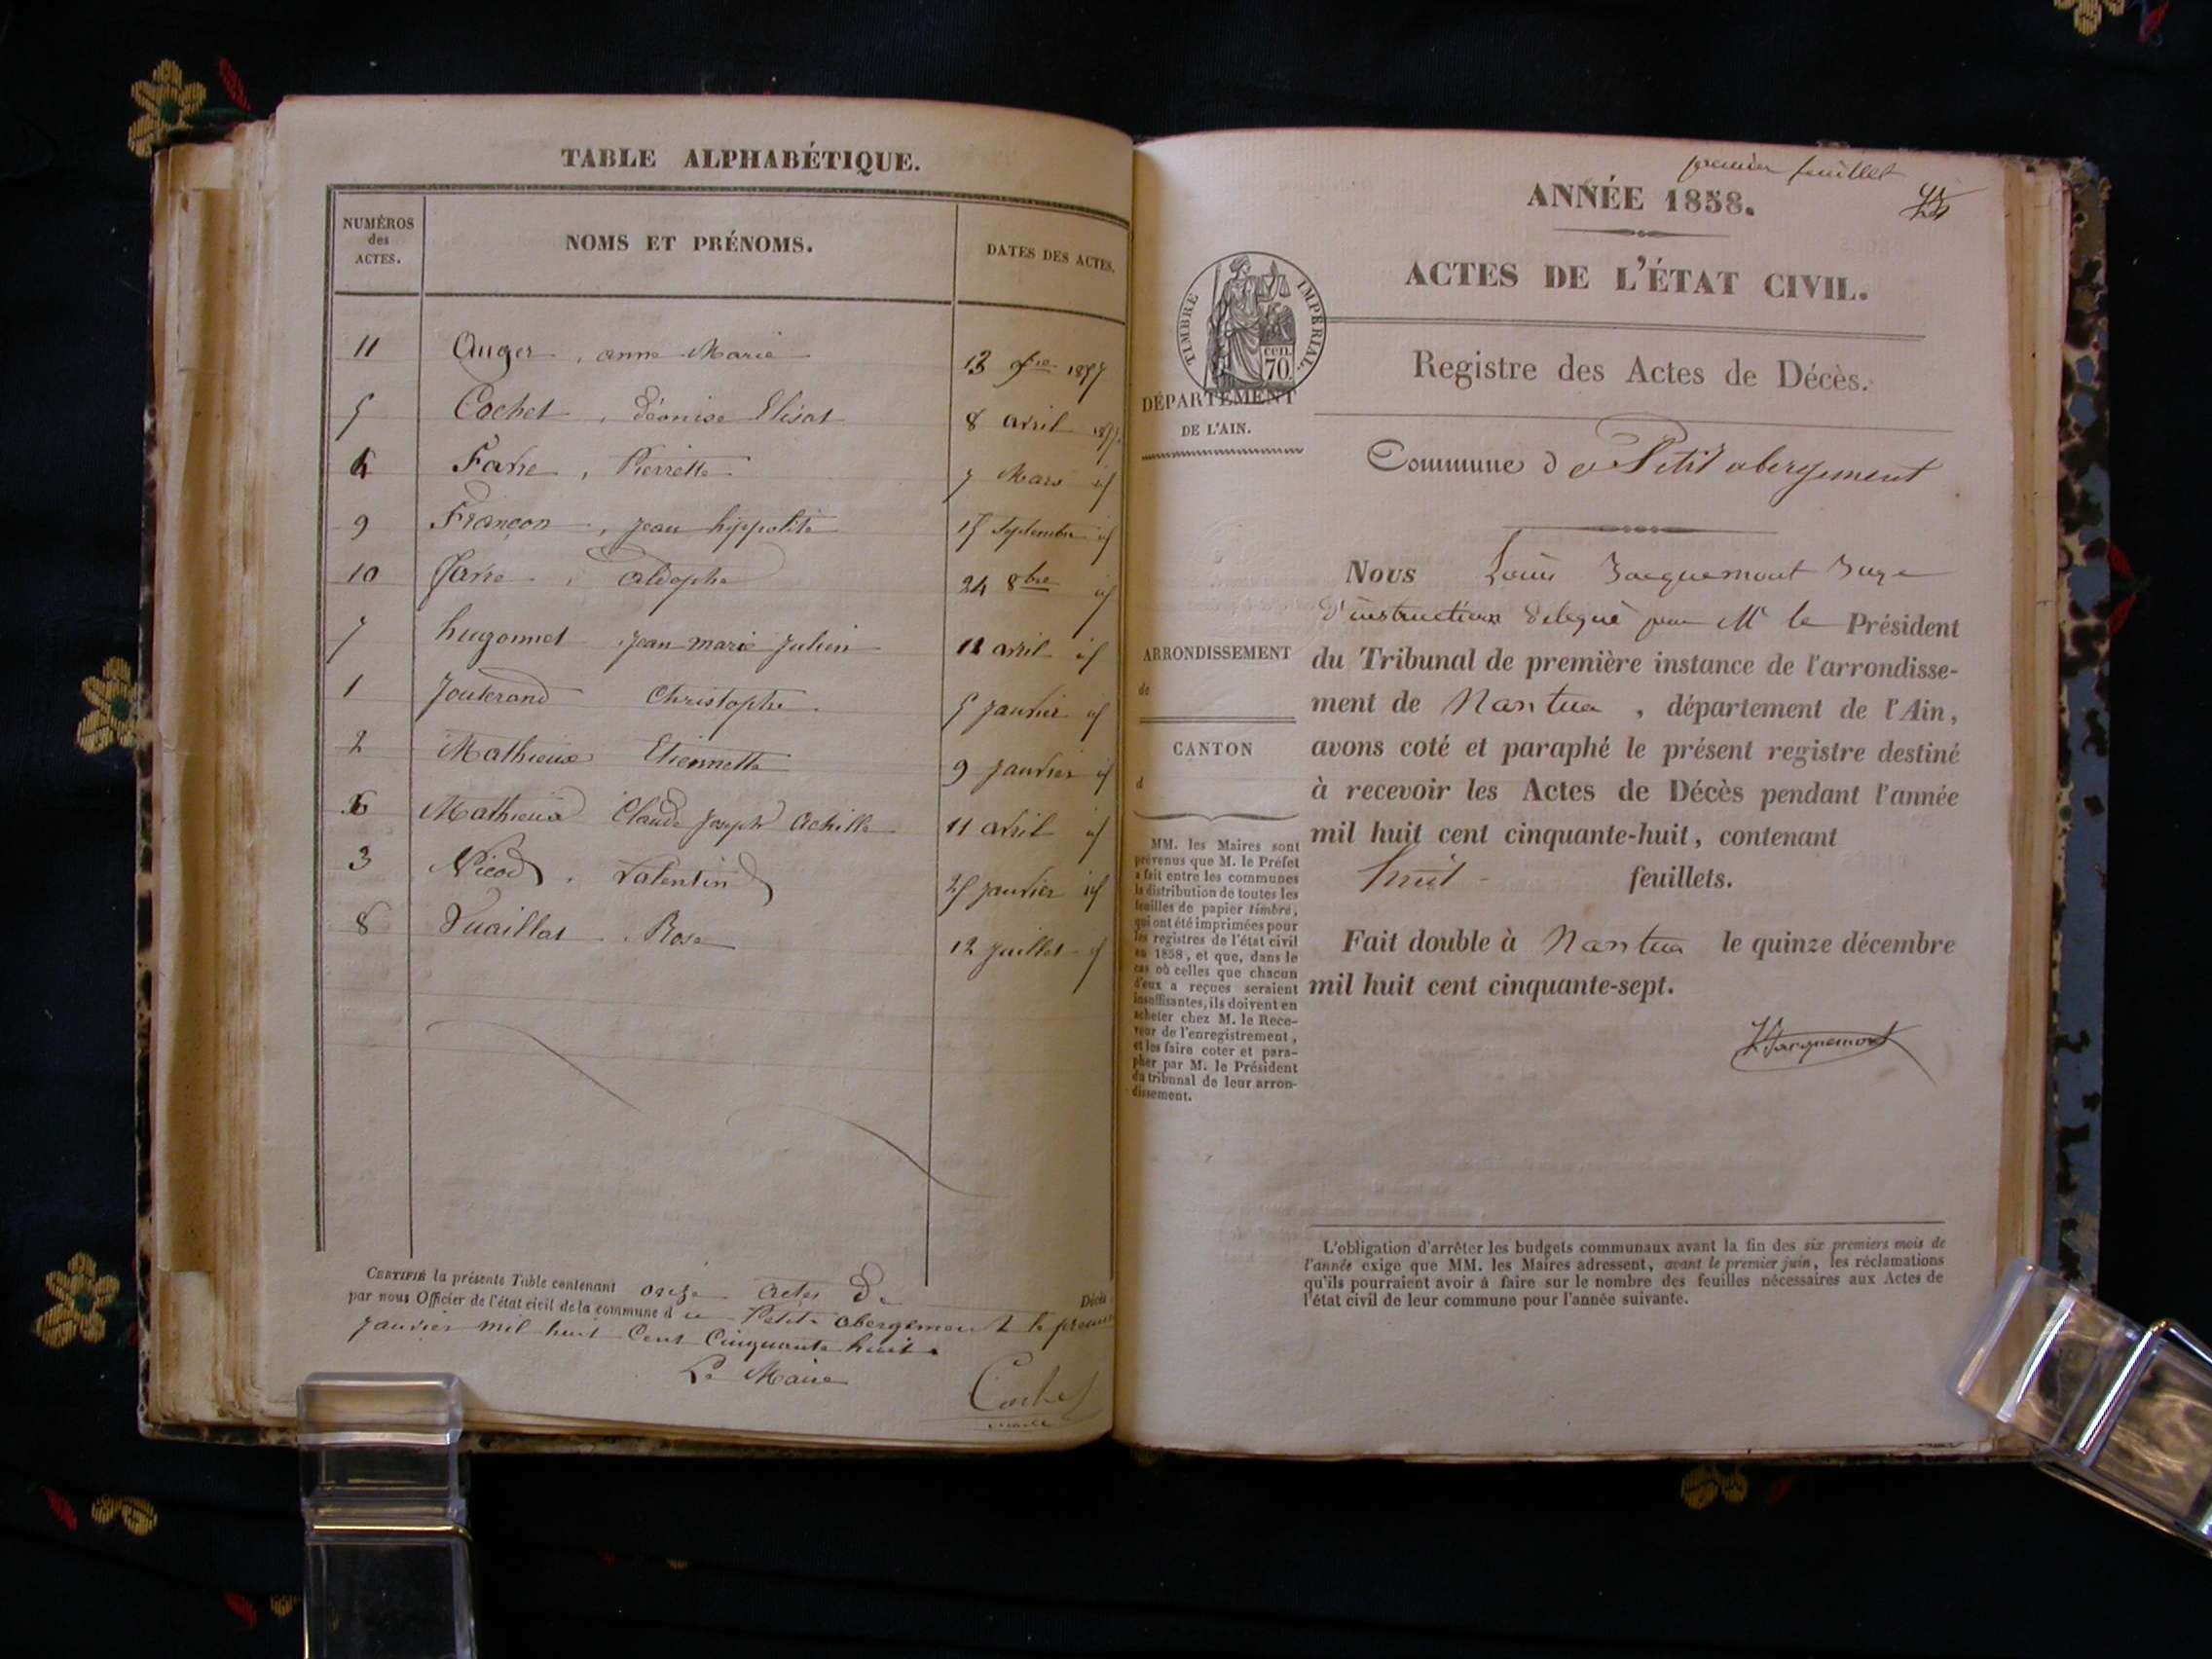 TABLE ALPHABÉTIQUE.
NUMÉROS
des
ACTES.
NOMS ET PRÉNOMS.
DATES DES ACTES.
11 Auger, anne Marie 13 9bre 1857
5 Cochet, Léonise Elisat 8 avril 1857
4 Favre, Pierrette 7 Mars id
9 Françon, jean hippolite 15 Septembre id
10 Favre, aldophe 24 8bre id
7 hugonnet jean marie julien 18 avril id
1 Jouterand Christophe 5 janvier id
2 Mathieux Etiennette 9 janvier id
6 Mathieux Claude joseph achille 11 avril id
3 Nicod, Valentin 25 janvier id
8 Vuaillat, Rose 12 juillet id
CERTIFIÉ la présente Table contenant onze actes de Décès
par nous Officier de l'état civil de la commune d u Petit abergement le premier
janvier mil huit Cent Cinquante huit
Le Maire
Cochet
premier feuillet
ANNÉE 1858.
ACTES DE L'ÉTAT CIVIL.
TIMBRE IMPÉRIAL.
cen.
70.
Registre des Actes de Décès.
DÉPARTEMENT
DE L'AIN.
Commune d e Petit abergement
Nous Louis Jacquemont Juge
d'instruction délegué par Mr le Président
ARRONDISSEMENT
de
du Tribunal de première instance de l'arrondisse-
ment de Nantua, département de l'Ain,
CANTON
d
avons coté et paraphé le présent registre destiné
à recevoir les Actes de Décès pendant l'année
mil huit cent cinquante-huit, contenant
huit feuillets.
Fait double à Nantua le quinze décembre
mil huit cent cinquante-sept.
Jacquemont
MM. les Maires sont
prévenus que M. le Préfet
a fait entre les communes
la distribution de toutes les
feuilles de papier timbré,
qui ont été imprimées pour
les registres de l'état civil
en 1858, et que, dans le
cas où celles que chacun
d'eux a reçues seraient
insuffisantes, ils doivent en
acheter chez M. le Rece-
veur de l'enregistrement,
et les faire coter et para-
pher par M. le Président
du tribunal de leur arron-
dissement.
L'obligation d'arrêter les budgets communaux avant la fin des six premiers mois de
l'année exige que MM. les Maires adressent, avant le premier juin, les réclamations
qu'ils pourraient avoir à faire sur le nombre des feuilles nécessaires aux Actes de
l'état civil de leur commune pour l'année suivante.